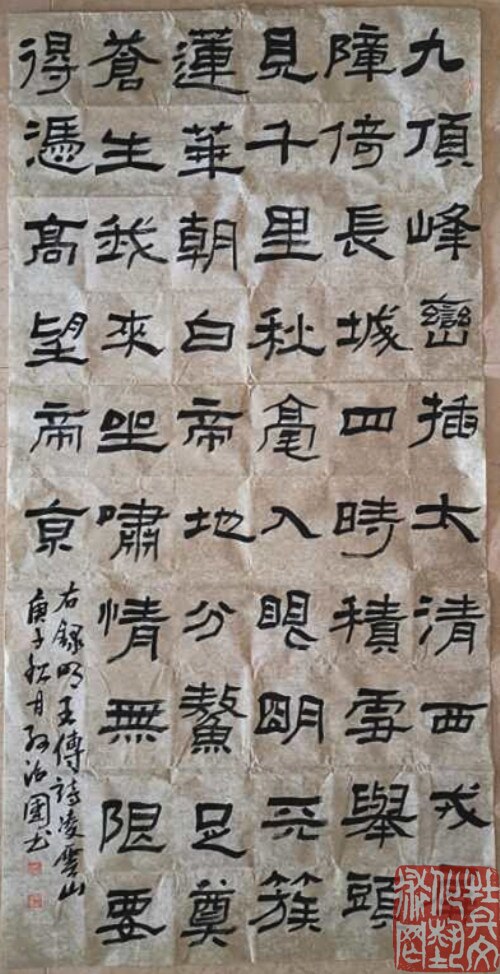 九頂峰巒插太清西戎
障倚長城四時積雪舉頭
見千里秋毫入眼明天簇
蓮華朝白帝地分鰲足奠
蒼生我來坐嘯情無限要
得憑高望帝京
右錄明王傅詩凌雲山
庚子秋月孫治國書